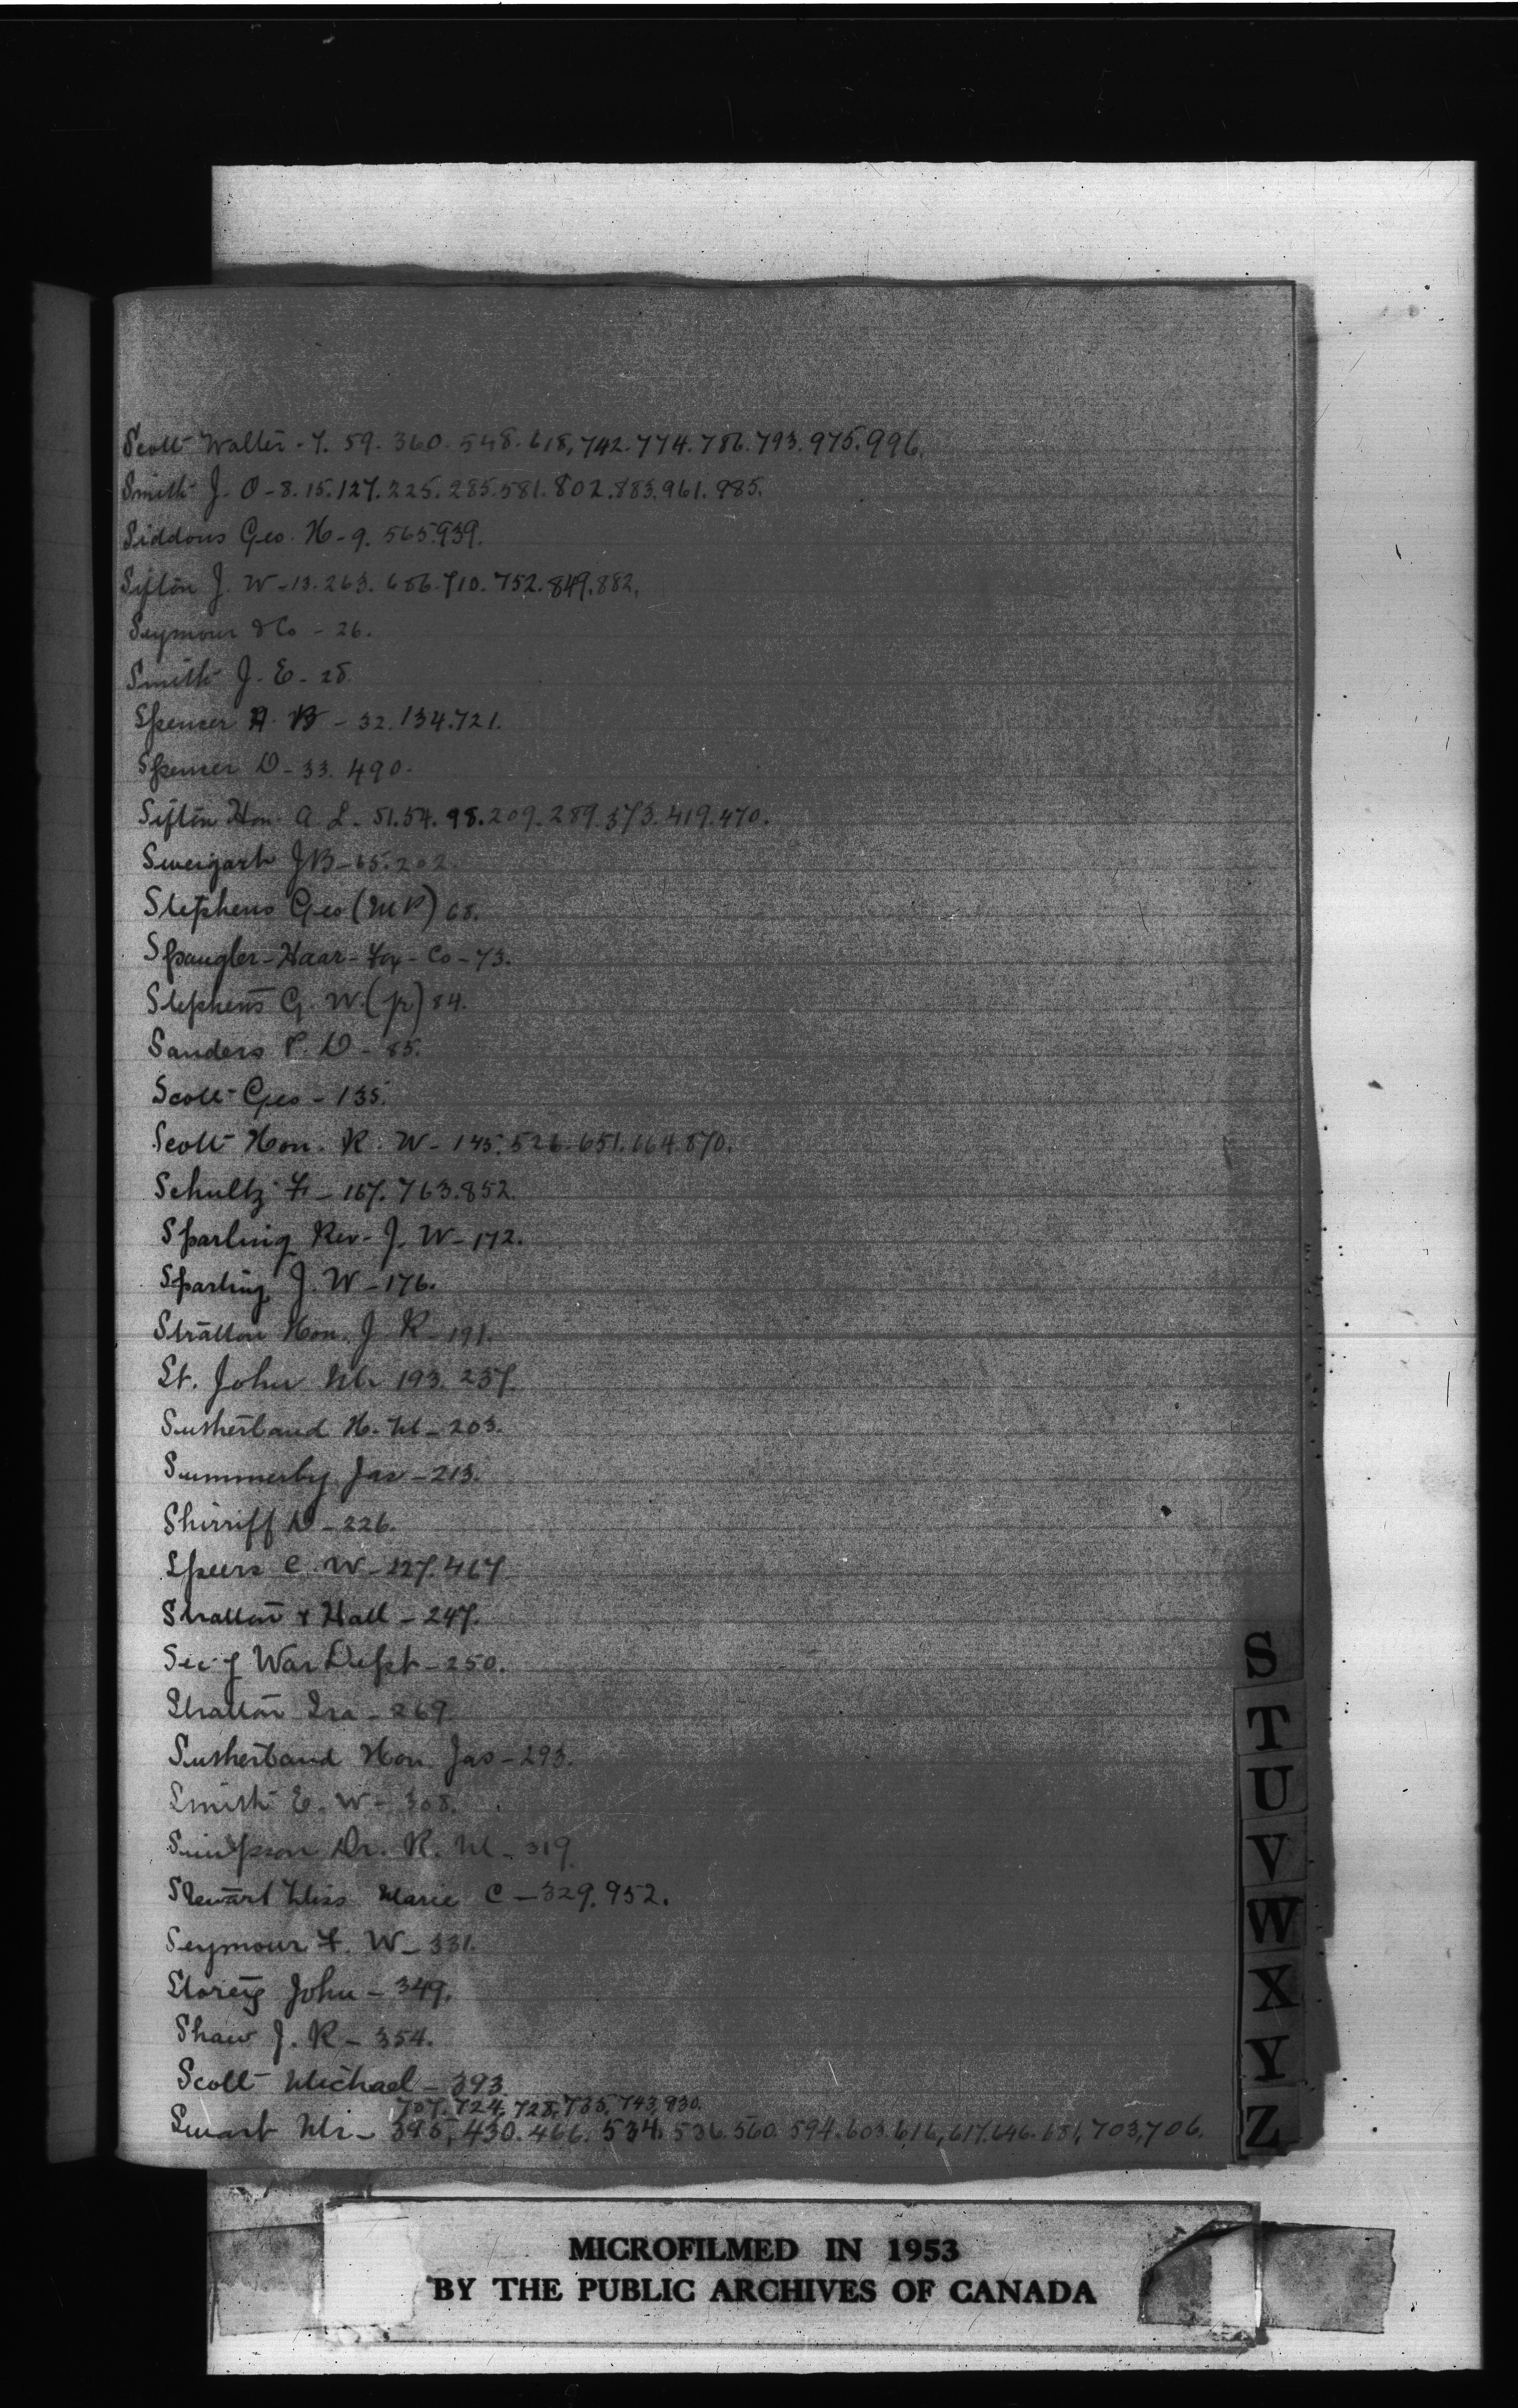 Scott Walter - 7. 59. 360. 548. 618, 742. 774. 786. 793. 975. 996.
Smith J. O - 8. 15. 127. 225. 285. 581. 802. 883. 961. 985.
Siddons Geo. H - 9. 565. 939.
Sifton J. W - 13. 263. 686. 710. 752. 849. 882.
Seymour & Co - 26.
Smith J. E - 28.
Spencer A. B - 32. 134. 721.
Spencer D - 33. 490.
Sifton Hon. A. L - 51. 54. 98. 209. 289. 373. 419. 470.
Sweigart J B - 65. 202.
Stephens Geo (M P) 68.
Spangler - Haar - Fox - Co - 73.
Stephens G. W. (jr) 84.
Sanders P. D - 85.
Scott Geo - 135.
Scott Hon. R. W - 145. 526. 651. 664. 870.
Schultz F - 167. 763. 852.
Sparling Rev. J. W - 172.
Sparling J. W - 176.
Stratton Hon. J. R - 191.
St. John Mr 193. 237.
Sutherland H. M - 203.
Summerby Jas - 213.
Shirriff D - 226.
Speers C. W - 227. 467.
Stratton & Hall - 247.
Sec of War Dept - 250.
Stratton Ira - 269.
Sutherland Hon. Jas - 293.
Smith E. W - 308.
Simpson Dr. R. M - 319.
Stewart Miss Marie C - 329. 952.
Seymour F. W - 331.
John - 349.
Shaw J. R - 354.
Scott Michael - 393.
707. 724. 728, 735. 743, 930.
Smart Mr - 395, 430. 466. 534. 536. 560. 594. 603. 616, 617. 646. 681, 703, 706.
S
T
U
V
W
X
Y
Z
MICROFILMED IN 1953
BY THE PUBLIC ARCHIVES OF CANADA